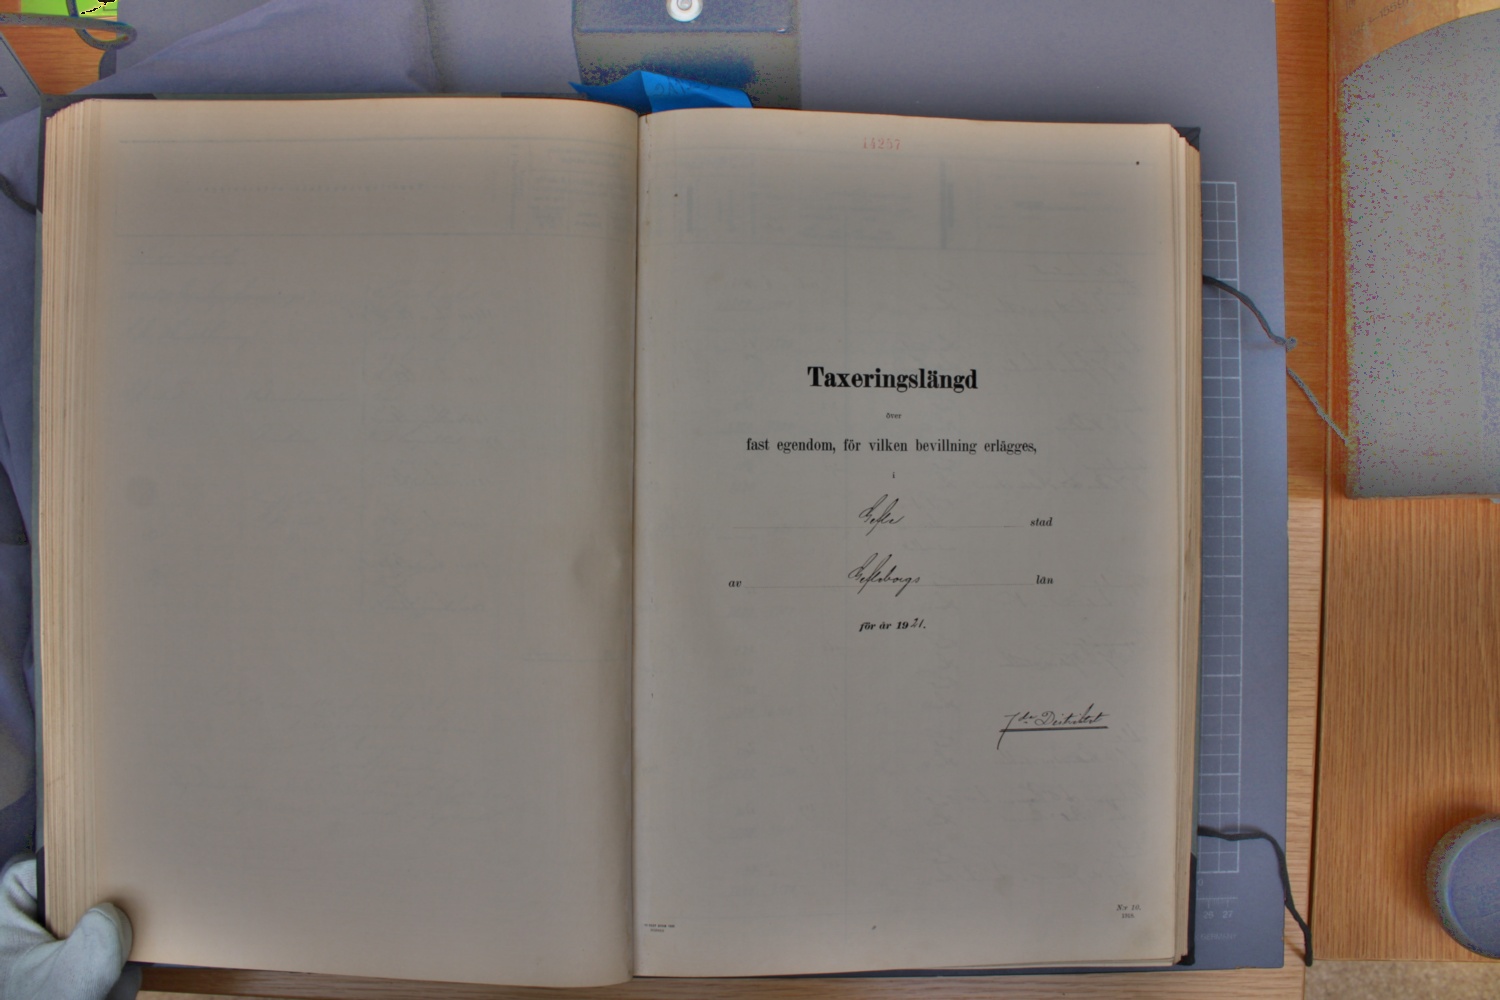 14257
Taxeringslängd
över
fast egendom, för vilken bevillning erlägges,
i
Gefle stad
av Gefleborgs län
för år 1921.
7de Distriktet
Nr 16.
26 27